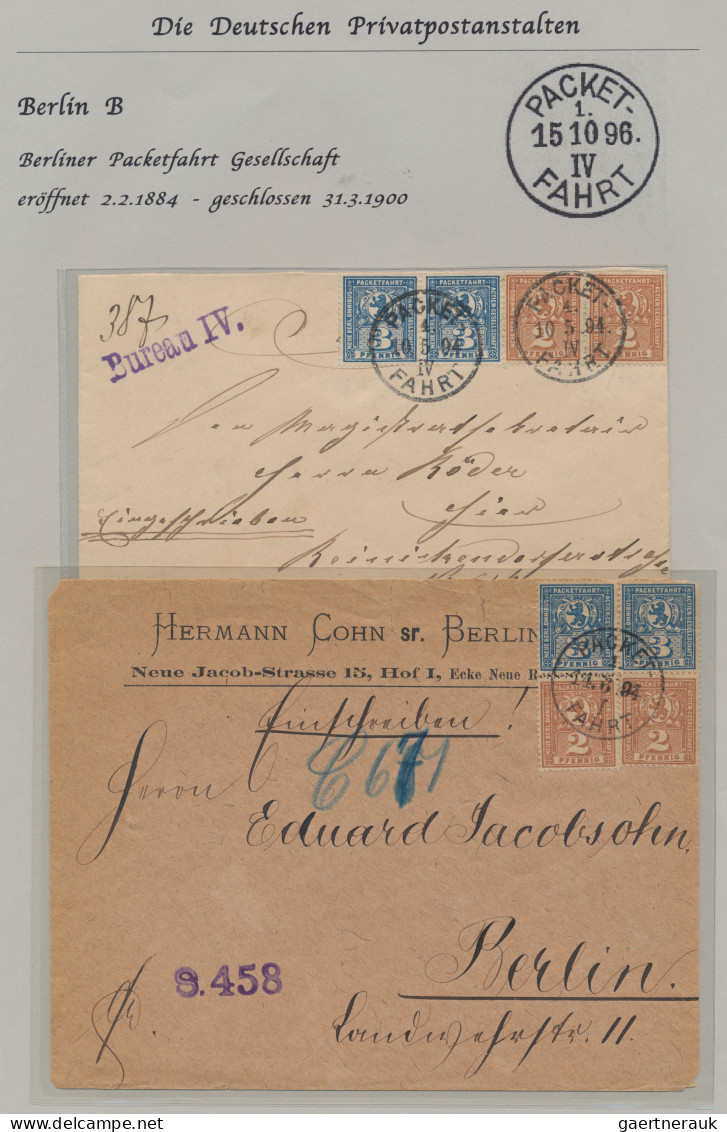 Die Deutschen Privatpostanstalten
Berlin B
Berliner Packetfahrt Gesellschaft
eröffnet 2.2.1884 - geschlossen 31.3.1900
PACKET-
1.
15 10 96.
IV
FAHRT
387
Bureau IV.
PACKETFAHRT
3
PFENNIG
PACKETFAHRT
3
PFENNIG
2
PFENNIG
2
PFENNIG
PACKET-
4.
10 5. 94.
IV
FAHRT
PACKET-
4.
10 5. 94.
IV
FAHRT
Den Magistratssekretair
Herrn Röder
Hier
Eingeschrieben
HERMANN COHN sr. BERLIN
Neue Jacob-Strasse 15, Hof I, Ecke Neue
PACKETFAHRT
3
PFENNIG
PACKETFAHRT
3
PFENNIG
2
PFENNIG
2
PFENNIG
PACKET-
94
FAHRT
Einschreiben!
Herrn
Eduard Jacobsohn.
S.458
Berlin.
Landwehrstr. 11.
gaertnerauk